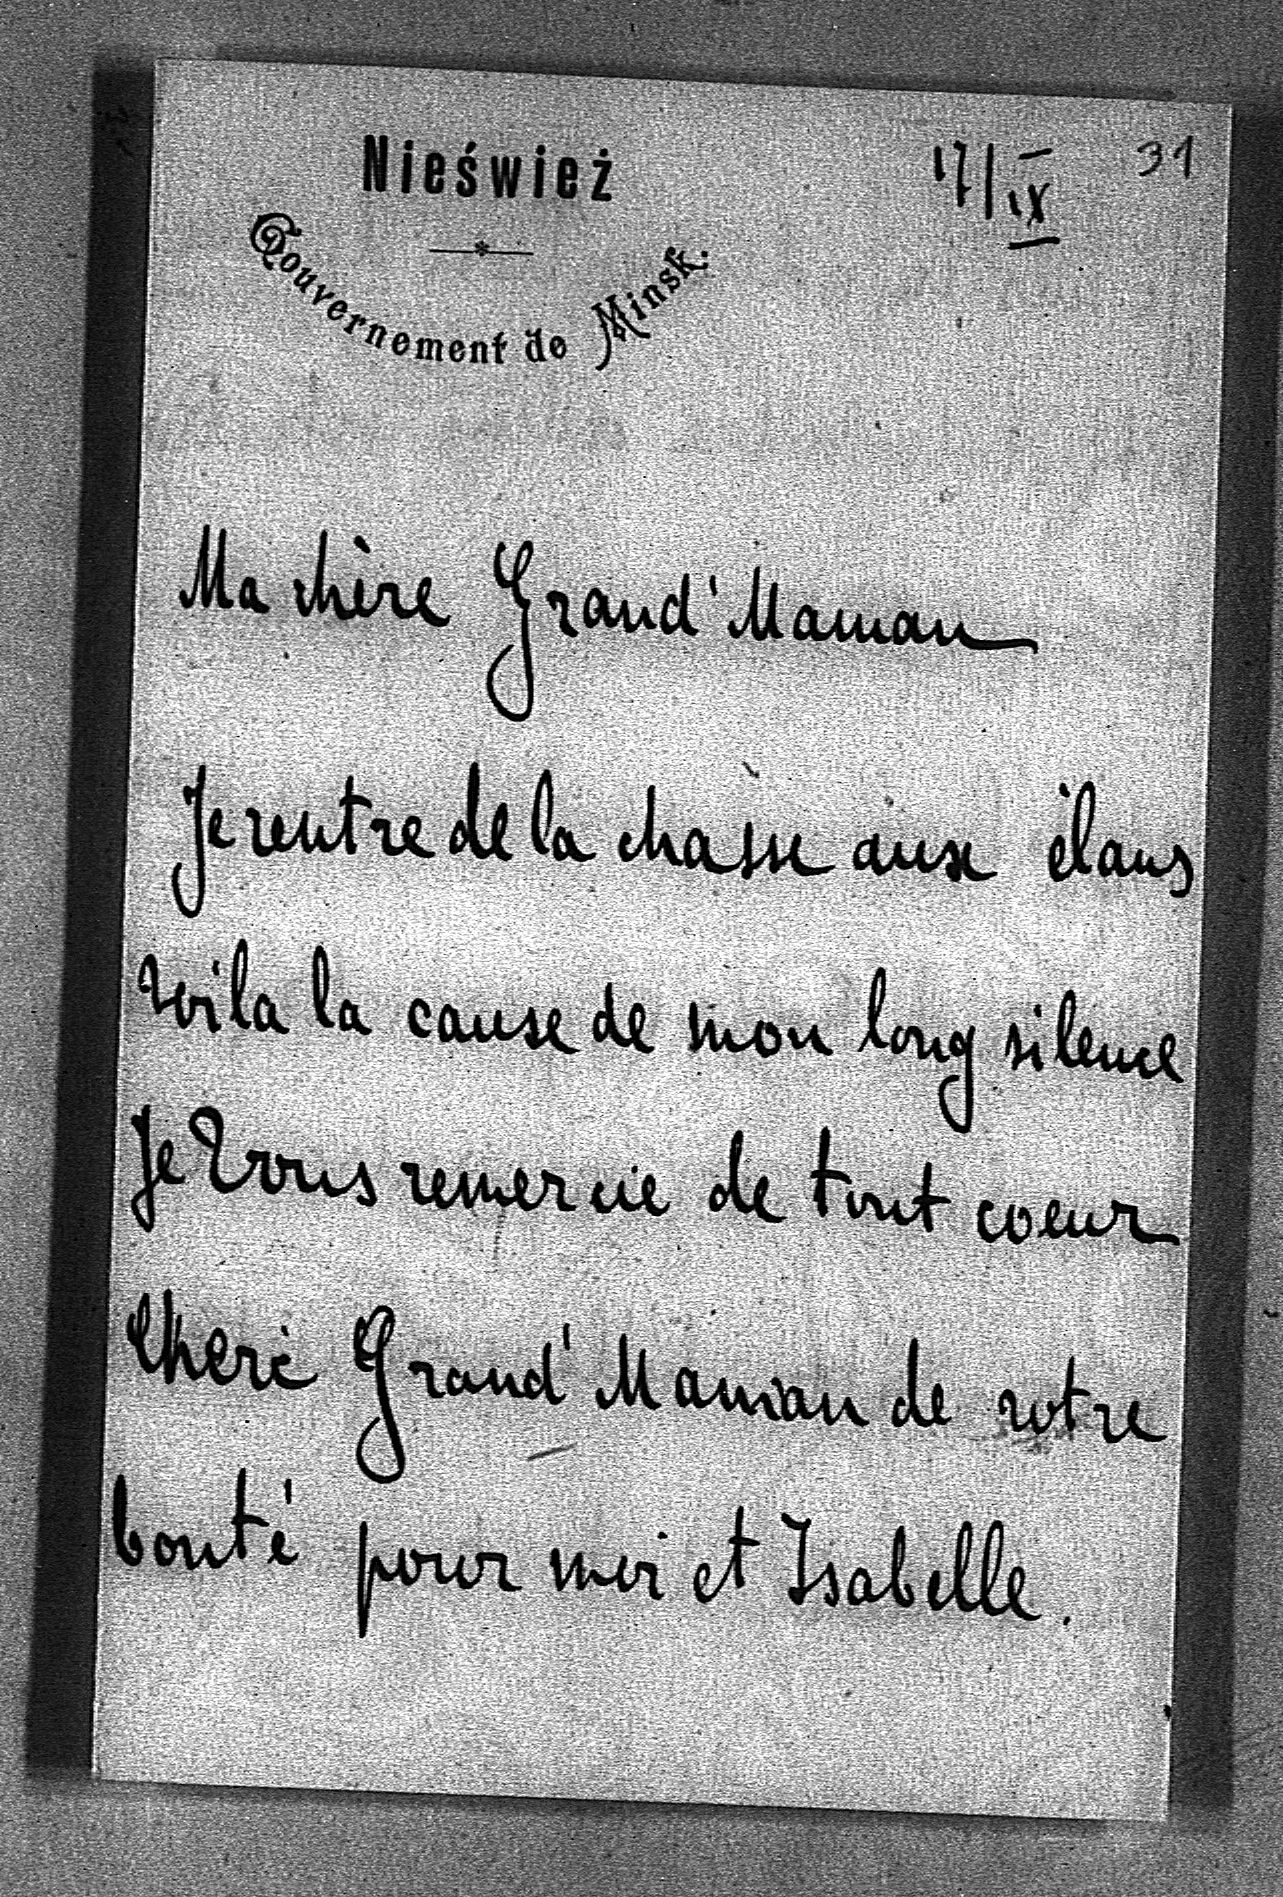 Nieśwież
17/IX
31
Gouvernement de Minsk.
Ma chère Grand'Maman
Je rentre de la chasse aux élans
voila la cause de mon long silence
Je Vous remercie de tout coeur
Cheré Grand'Maman de votre
bonté pour moi et Isabelle.